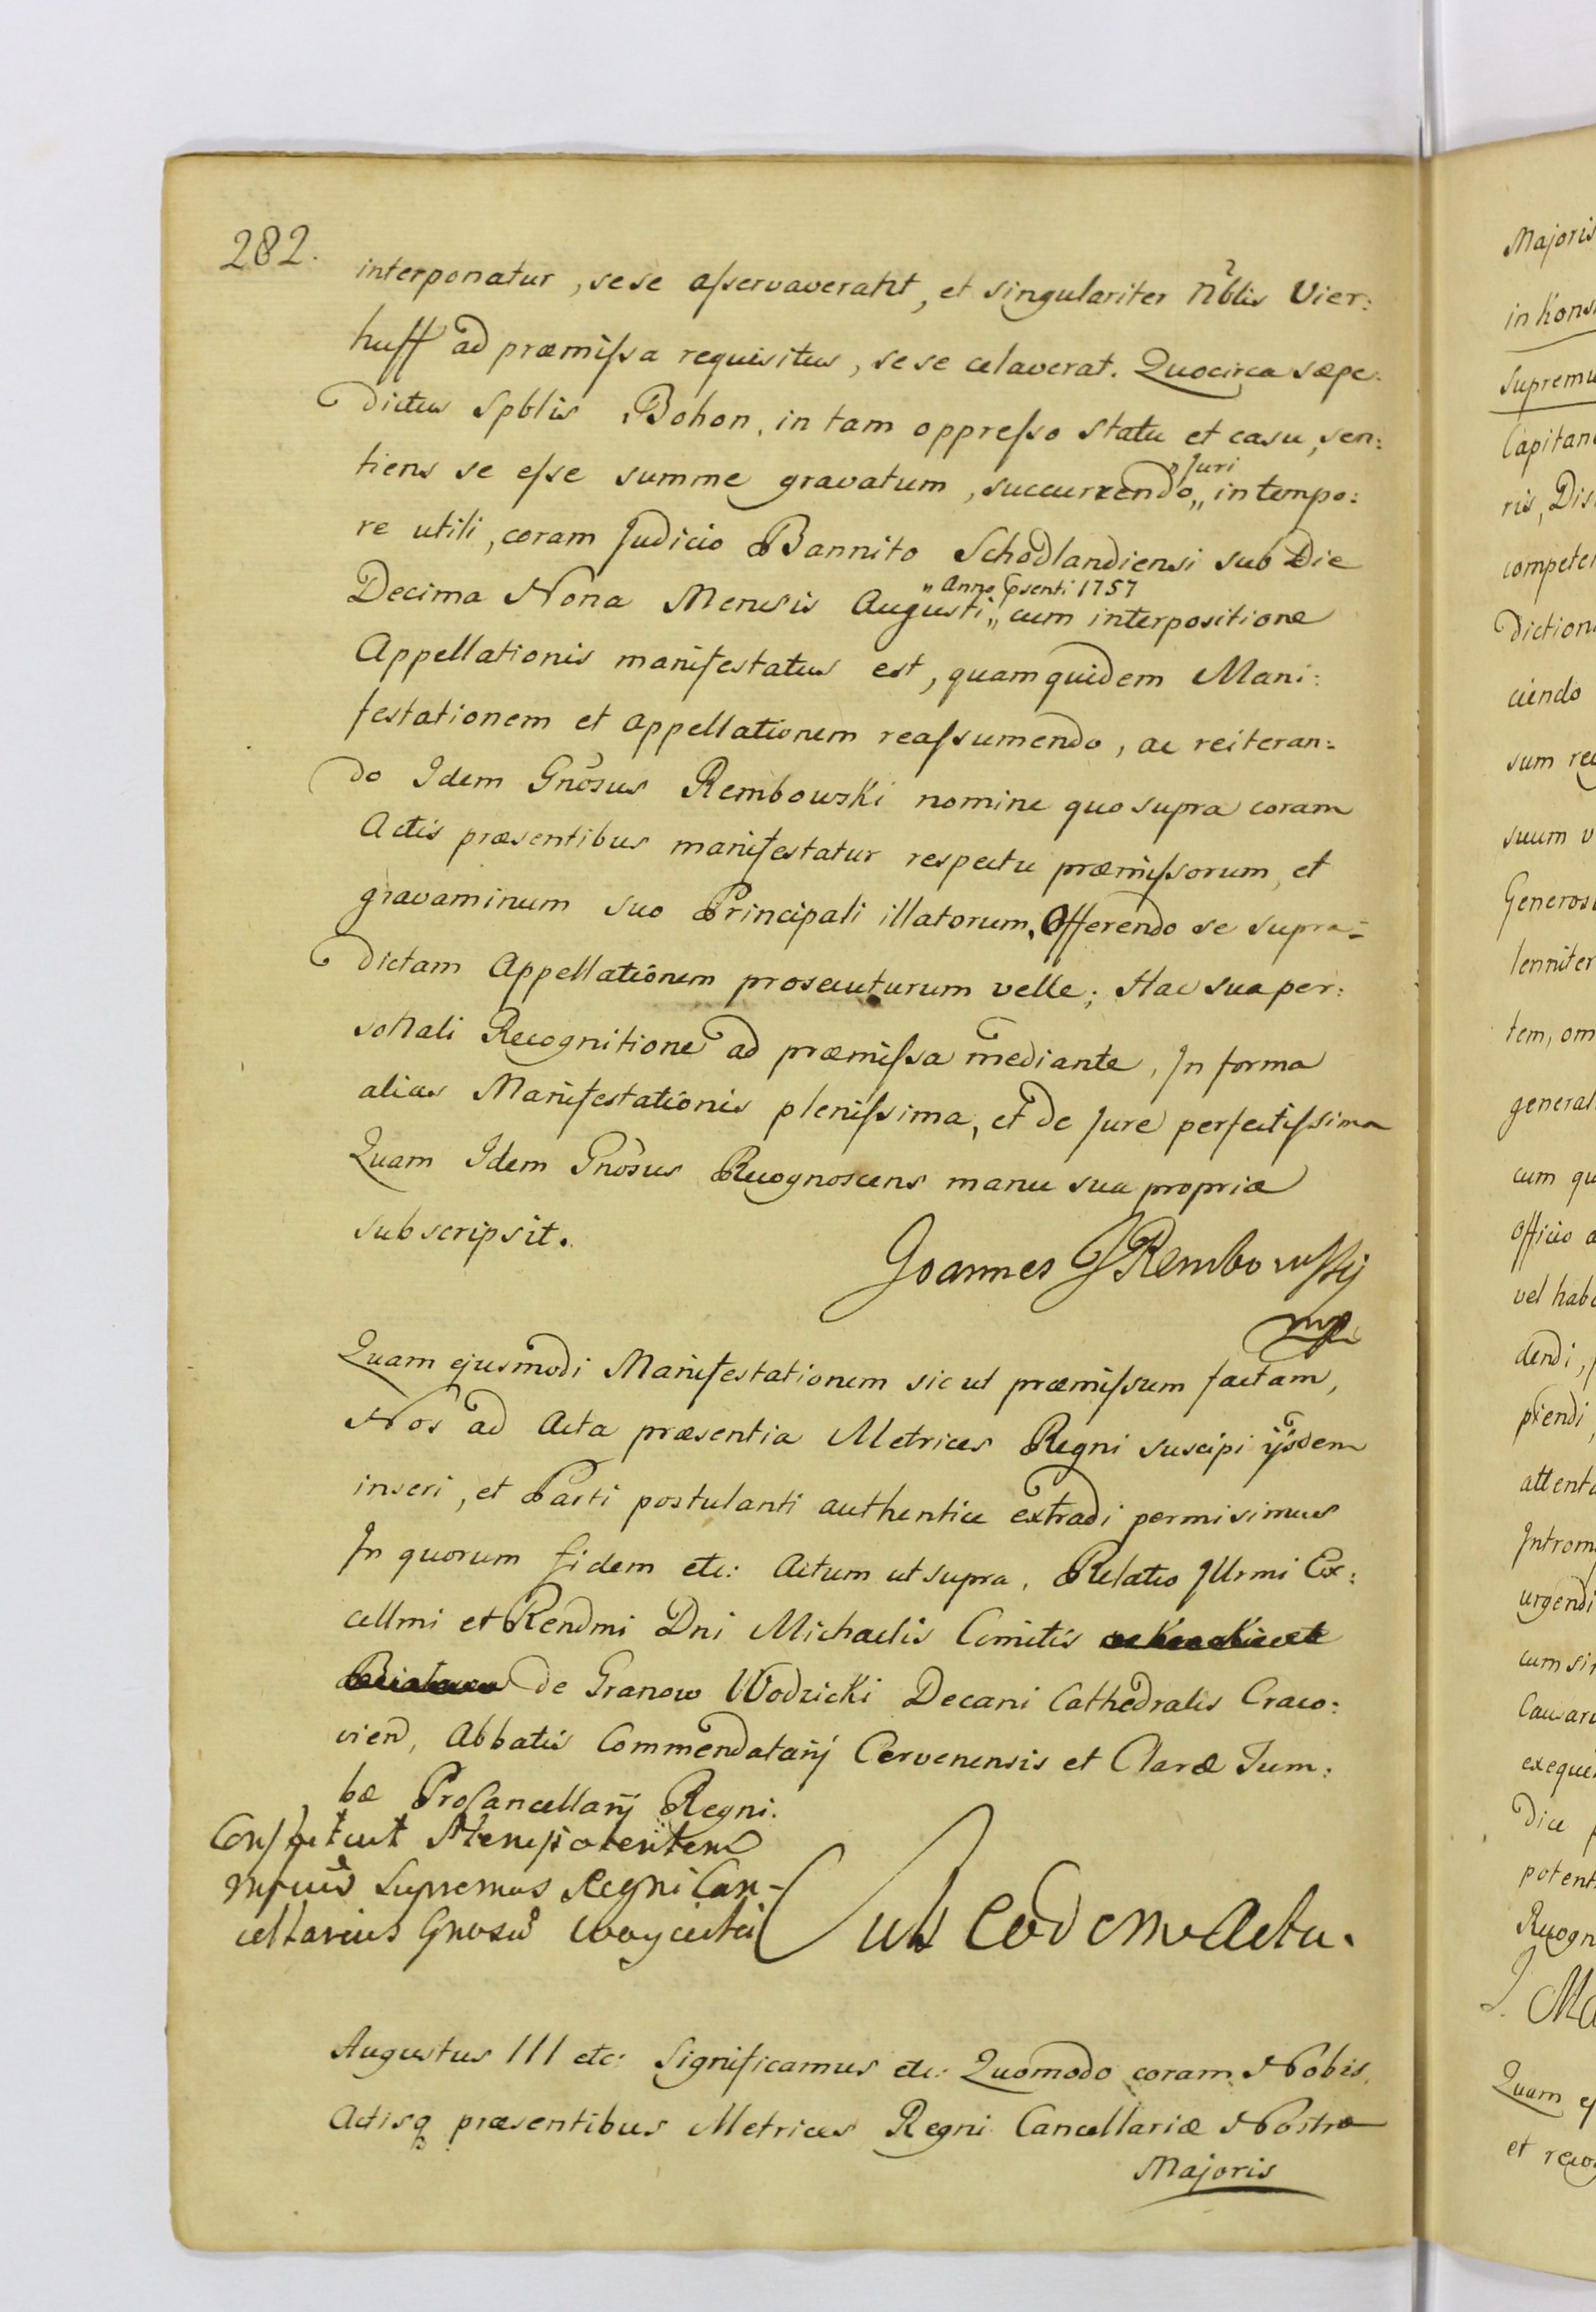 282.
interponatur, sese aſservaverant, et singulariter Nblis Vier:
huff ad præmiſsa requisitus, sese celaverat. Quocirca sæpe:
dictus Spblis Bohon, in tam oppreſso statu et casu, sen:
tiens se eſse summe gravatum, succurrendo „ Juri in tempo:
re utili, coram Judicio Bannito Schodlandiensi sub Die
Decima Nona Mensis Augusti „ Anno Psenti 1757 cum interpositione
Appellationis manifestatus est, quam quidem Mani:
festationem et appellationem reaſsumendo, ac reiteran:
do Idem Gnosus Rembowski nomine quo supra coram
Actis præsentibus manifestatur respectu præmiſsorum, et
gravaminum suo Principali illatorum, Offerendo se supra=
dictam Appellationem prosecuturum velle; Hac sua per:
sonali Recognitione ad præmiſsa mediante, In forma
alias Manifestationis pleniſsima, et de Jure perfectiſsima
Quam Idem Gnosus Recognoscens manu sua propria
subscripsit.
Joannes Rembowſkij
mp
Quam ejusmodi Manifestationem sic ut præmiſsum factam,
Nos ad Acta præsentia Metrices Regni suscipi ijsdem
inseri, et Parti postulanti authentice extradi permisimus
In quorum fidem etc: Actum ut supra, Relatio Illrmi Ex:
cellmi et Rendmi Dni Michaelis Comitis
de Granow Wodzicki Decani Cathedralis Craco:
vien, Abbatis Commendatarij Cervenensis et Claræ Tum:
bæ ProCancellarij Regni.
Conſtituit Plenipotentem
Supremus Regni Can-
cellarius Gnosū
Sub Eodem Actu.
Augustus III etc: Significamus etc: Quomodo coram Nobis,
Actisq præsentibus Metrices Regni Cancellariæ Nostræ
Majoris
Majoris
in Kons
Supremu
Capitan
ris, Dis
compete
diction
ciendo
sum re
suum v
Generos
lenniter
tem, om
general
cum qu
Officio a
vel hab
dendi,
piendi
attent
Introm
urgendi
cum si
Causar
exequ
dice
potent
Recogn
J. Ma
Quam e
et reco